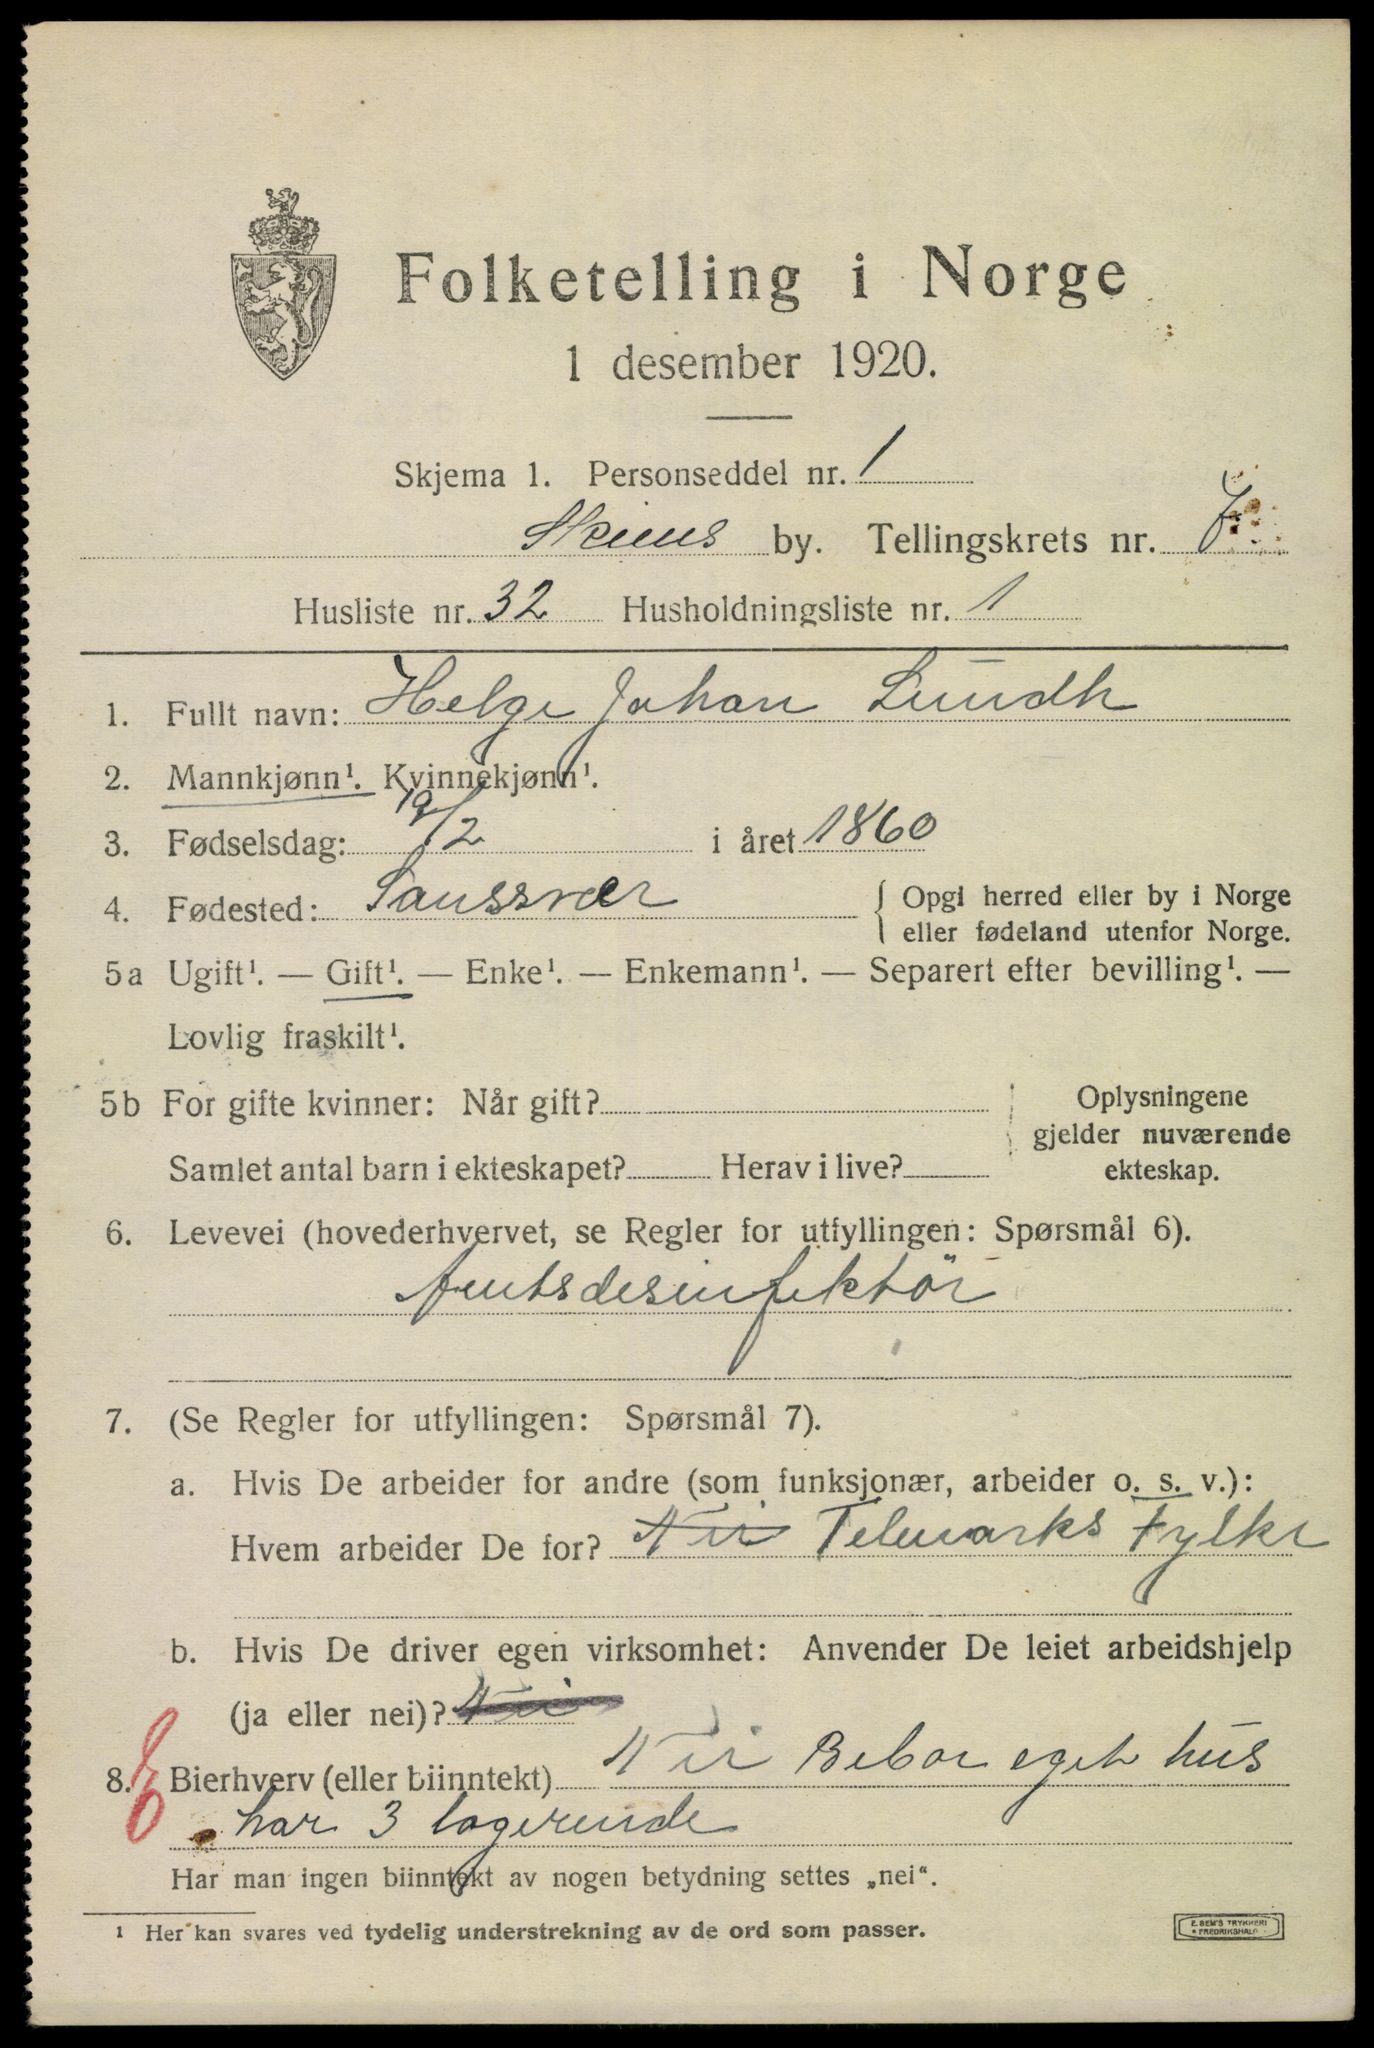 Folketelling i Norge
1 desember 1920.
Skjema 1. Personseddel nr. 1
Skiens by. Tellingskrets nr. 7
Husliste nr. 32 Husholdningsliste nr. 1
1. Fullt navn: Helge Johan Lundh
2. Mannkjønn¹. Kvinnekjønn¹.
3. Fødselsdag: 19/2 i året 1860
4. Fødested: Sanssvær { Opgi herred eller by i Norge
eller fødeland utenfor Norge.
5a Ugift¹. — Gift¹. — Enke¹. — Enkemann¹. — Separert efter bevilling¹. —
Lovlig fraskilt¹.
5b For gifte kvinner: Når gift? Oplysningene
gjelder nuværende
Samlet antal barn i ekteskapet? Herav i live? ekteskap.
6. Levevei (hovederhvervet, se Regler for utfyllingen: Spørsmål 6).
Amtsdesinfektör
7. (Se Regler for utfyllingen: Spørsmål 7).
a. Hvis De arbeider for andre (som funksjonær, arbeider o. s. v.):
Hvem arbeider De for? Nei Telemarks Fylke
b. Hvis De driver egen virksomhet: Anvender De leiet arbeidshjelp
(ja eller nei)? Nei
8. Bierhverv (eller biinntekt) Nei Bebor eget hus
har 3 logerende
Har man ingen biinntekt av nogen betydning settes „nei“.
¹ Her kan svares ved tydelig understrekning av de ord som passer.
E. SEM'S TRYKKERI
FREDRIKSHALD